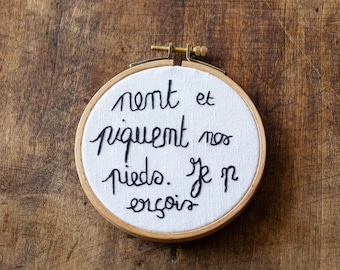 nent et
piquent nos
pieds. Je p
erçois